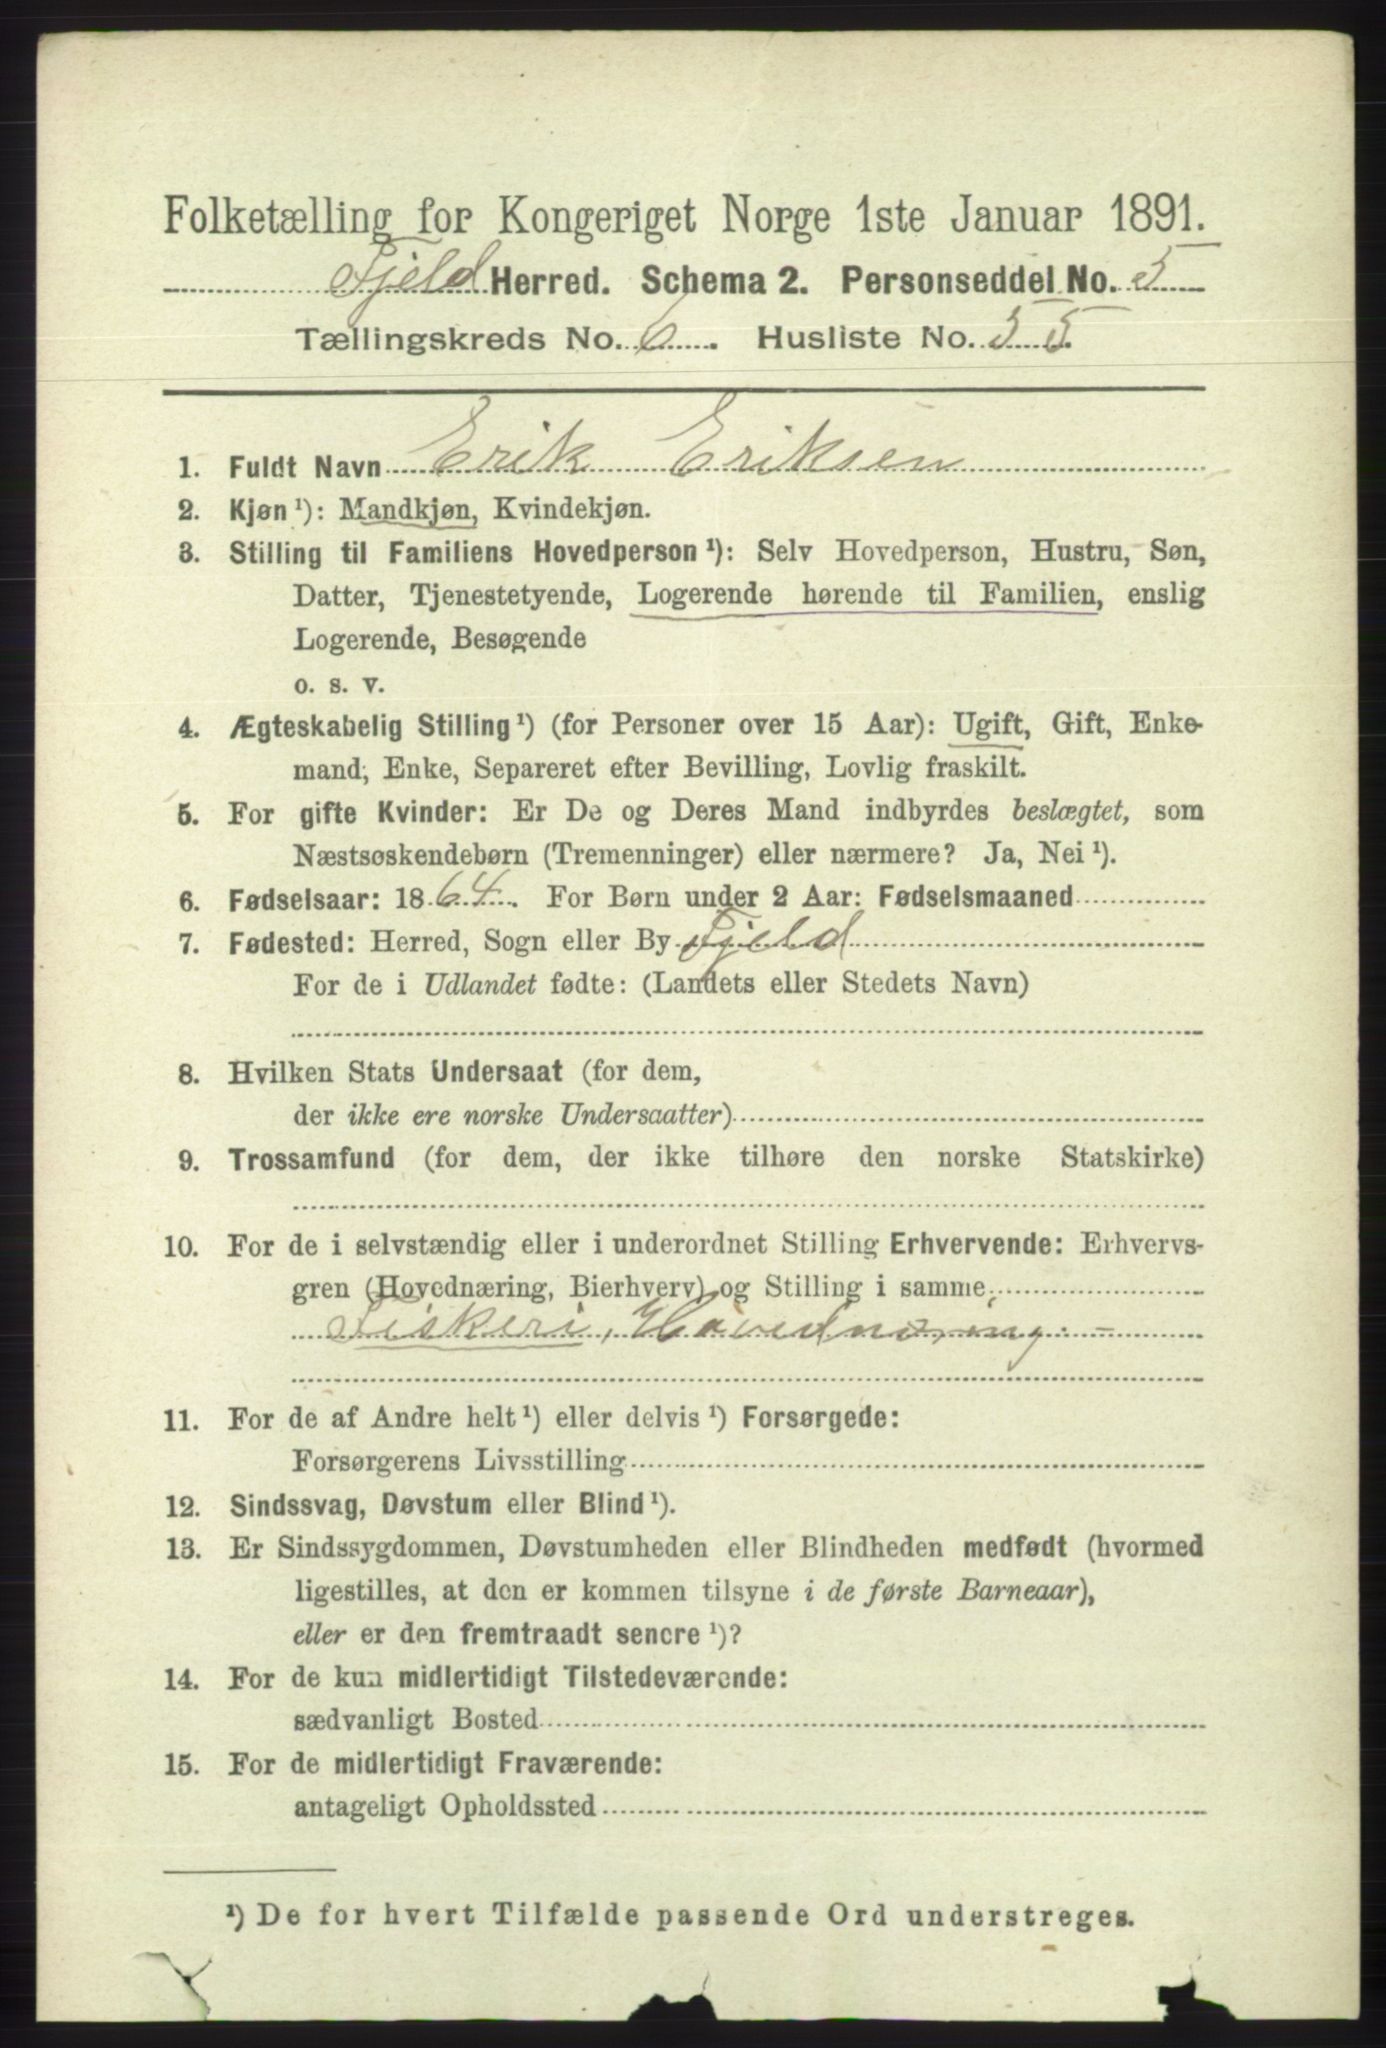 Folketælling for Kongeriget Norge 1ste Januar 1891.
Fjeld Herred. Schema 2. Personseddel No. 5
Tællingskreds No. 6. Husliste No. 55.
1. Fuldt Navn Erik Eriksen
2. Kjøn ¹): Mandkjøn, Kvindekjøn.
3. Stilling til Familiens Hovedperson ¹): Selv Hovedperson, Hustru, Søn,
Datter, Tjenestetyende, Logerende hørende til Familien, enslig
Logerende, Besøgende
o. s. v.
4. Ægteskabelig Stilling ¹) (for Personer over 15 Aar): Ugift, Gift, Enke-
mand, Enke, Separeret efter Bevilling, Lovlig fraskilt.
5. For gifte Kvinder: Er De og Deres Mand indbyrdes beslægtet, som
Næstsøskendebørn (Tremenninger) eller nærmere? Ja, Nei ¹).
6. Fødselsaar: 1864. For Børn under 2 Aar: Fødselsmaaned
7. Fødested: Herred, Sogn eller By Fjeld
For de i Udlandet fødte: (Landets eller Stedets Navn)
8. Hvilken Stats Undersaat (for dem,
der ikke ere norske Undersaatter)
9. Trossamfund (for dem, der ikke tilhøre den norske Statskirke)
10. For de i selvstændig eller i underordnet Stilling Erhvervende: Erhvervs-
gren (Hovednæring, Bierhverv) og Stilling i samme
Fiskeri, Hovednæring. –
11. For de af Andre helt ¹) eller delvis ¹) Forsørgede:
Forsørgerens Livsstilling
12. Sindssvag, Døvstum eller Blind ¹).
13. Er Sindssygdommen, Døvstumheden eller Blindheden medfødt (hvormed
ligestilles, at den er kommen tilsyne i de første Barneaar),
eller er den fremtraadt senere ¹)?
14. For de kun midlertidigt Tilstedeværende:
sædvanligt Bosted
15. For de midlertidigt Fraværende:
antageligt Opholdssted
¹) De for hvert Tilfælde passende Ord understreges.